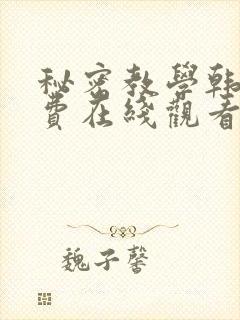 秘密教學韩
費在綫觀看
魏子馨